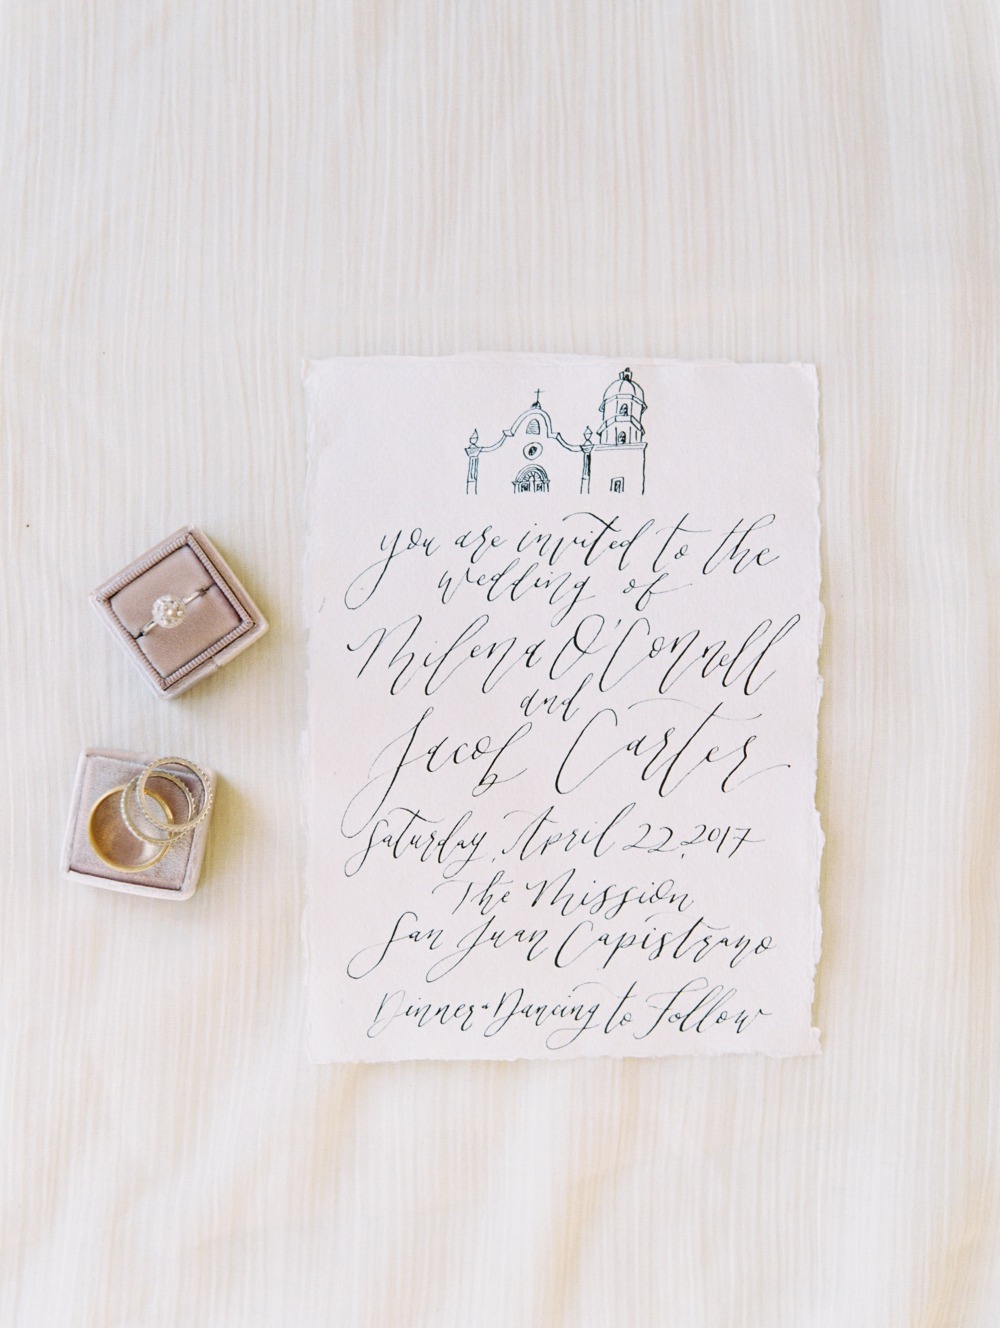 you are invited to the
wedding of
Milena O'Connell
and
Jacob Carter
Saturday, April 22, 2017
The Mission
San Juan Capistrano
Dinner + Dancing to Follow